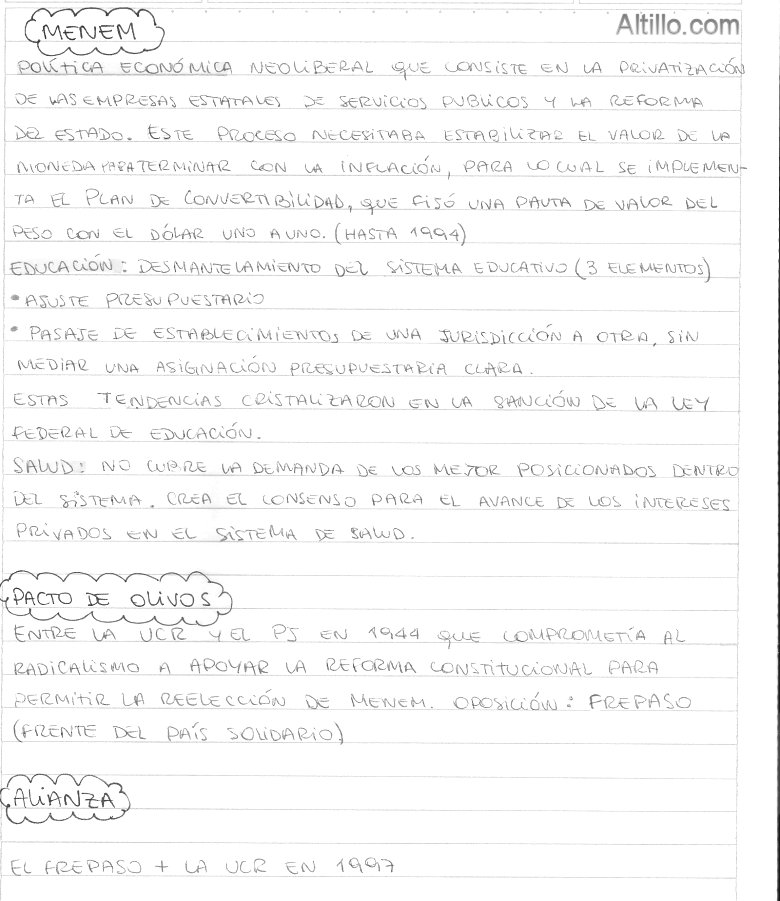 MENEM
Altillo.com
POLÍTICA ECONÓMICA NEOLIBERAL QUE CONSISTE EN LA PRIVATIZACIÓN
DE LAS EMPRESAS ESTATALES DE SERVICIOS PUBLICOS Y LA REFORMA
DEL ESTADO. ESTE PROCESO NECESITABA ESTABILIZAR EL VALOR DE LA
MONEDA PARA TERMINAR CON LA INFLACIÓN, PARA LO CUAL SE IMPLEMEN-
TA EL PLAN DE CONVERTIBILIDAD, QUE FISÓ UNA PAUTA DE VALOR DEL
PESO CON EL DÓLAR UNO A UNO. (HASTA 1994)
EDUCACIÓN: DESMANTELAMIENTO DEL SISTEMA EDUCATIVO (3 ELEMENTOS)
• AJUSTE PRESUPUESTARIO
• PASAJE DE ESTABLECIMIENTOS DE UNA JURISDICCIÓN A OTRA, SIN
MEDIAR UNA ASIGINACIÓN PRESUPUESTARIA CLARA.
ESTAS TENDENCIAS CRISTALIZARON EN LA SANCIÓN DE LA LEY
FEDERAL DE EDUCACIÓN.
SALUD: NO CUBRE LA DEMANDA DE LOS MEJOR POSICIONADOS DENTRO
DEL SISTEMA. CREA EL CONSENSO PARA EL AVANCE DE LOS INTERESES
PRIVADOS EN EL SISTEMA DE SALUD.
PACTO DE OLIVOS
ENTRE LA UCR Y EL PJ EN 1944 QUE COMPROMETÍA AL
RADICALISMO A APOYAR LA REFORMA CONSTITUCIONAL PARA
PERMITIR LA REELECCIÓN DE MENEM. OPOSICIÓN: FREPASO
(FRENTE DEL PAÍS SOLIDARIO)
ALIANZA
EL FREPASO + LA UCR EN 1997